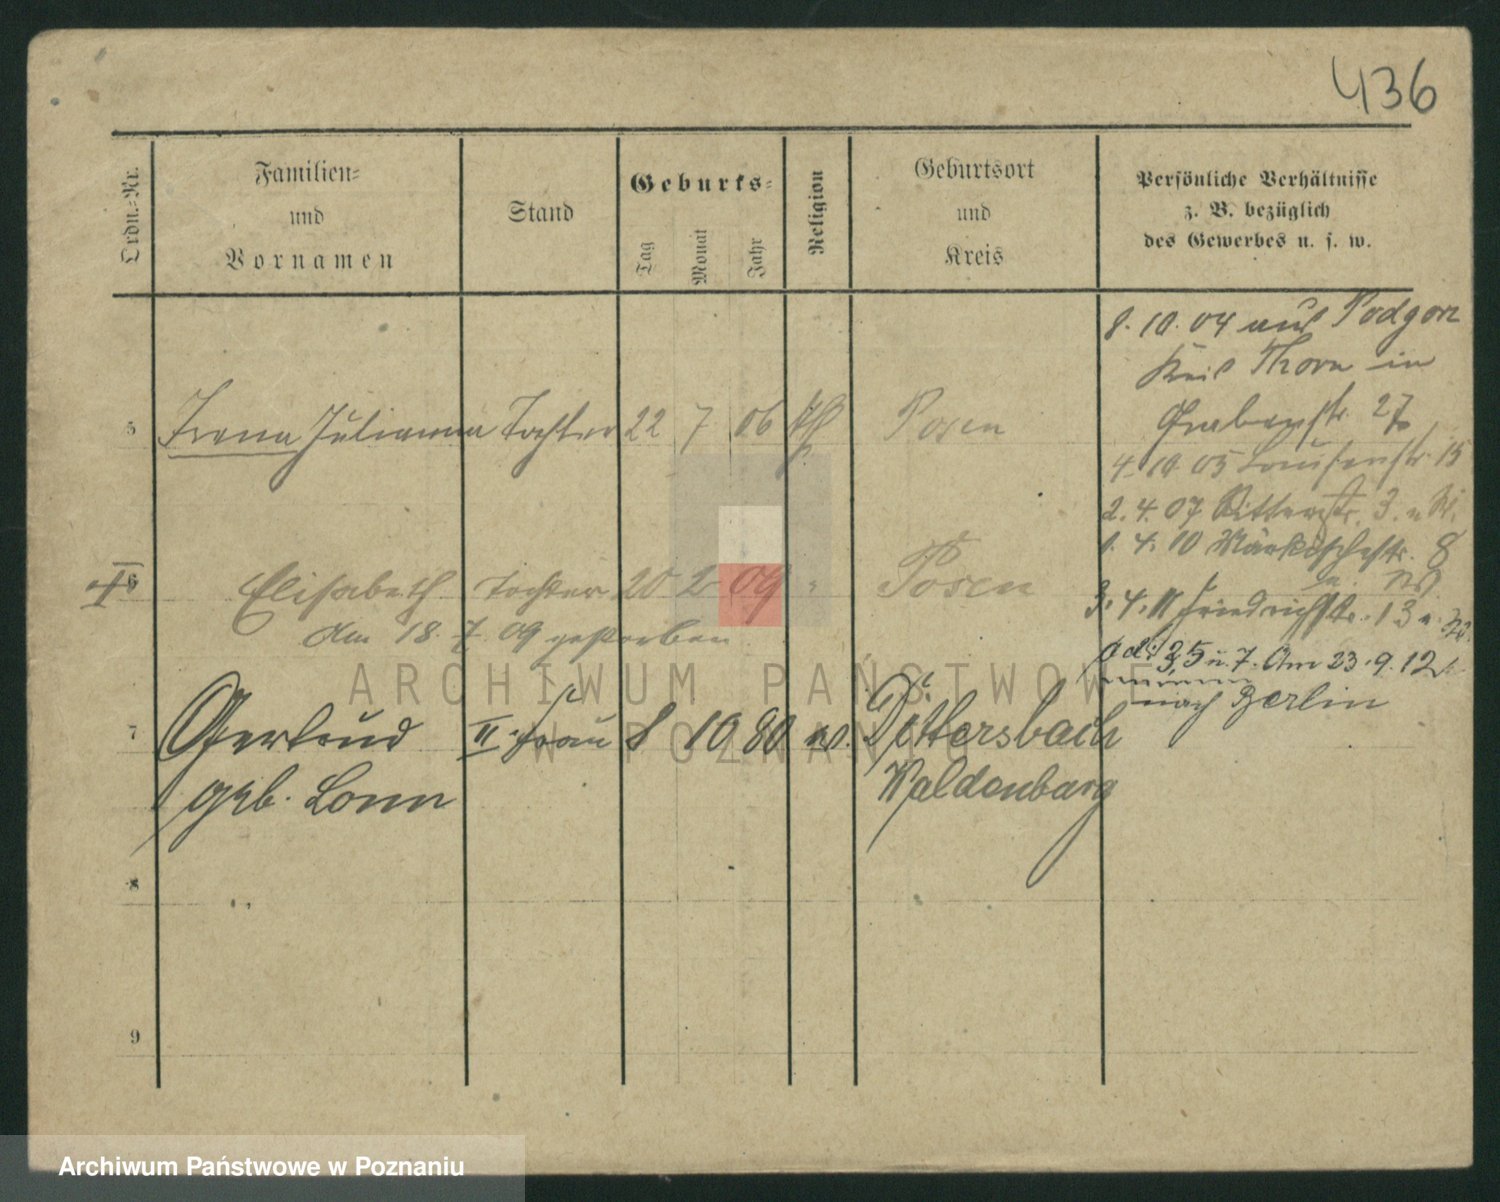 436
Ordn.-Nr.
Familien-
und
Vornamen
Stand
Geburts-
Tag
Monat
Jahr
Religion
Geburtsort
und
Kreis
Persönliche Verhältnisse
z. B. bezüglich
des Gewerbes u. s. w.
8. 10. 04 aus Podgorz
Kreis Thorn in
Grabenstr. 27
4. 10 05 Louisenstr. 15
2. 4. 07 Ritterstr. 3.
1. 4. 10 Märkischestr. 8
3. 4. 11 Friedrichstr. 13
35 u. 7. Am 23. 9. 12
nach Berlin
5 Irena Julianna Tochter 22 7 06 Posen
6 Elisabeth Tochter 20 2 09 " Posen
Am 18. 7. 09 gestorben
7 Gertrud II. Frau 8 10 80 ev. Dittersbach
geb. Waldenburg
8
9
ARCHIWUM PAŃSTWOWE
W POZNANIU
Archiwum Państwowe w Poznaniu